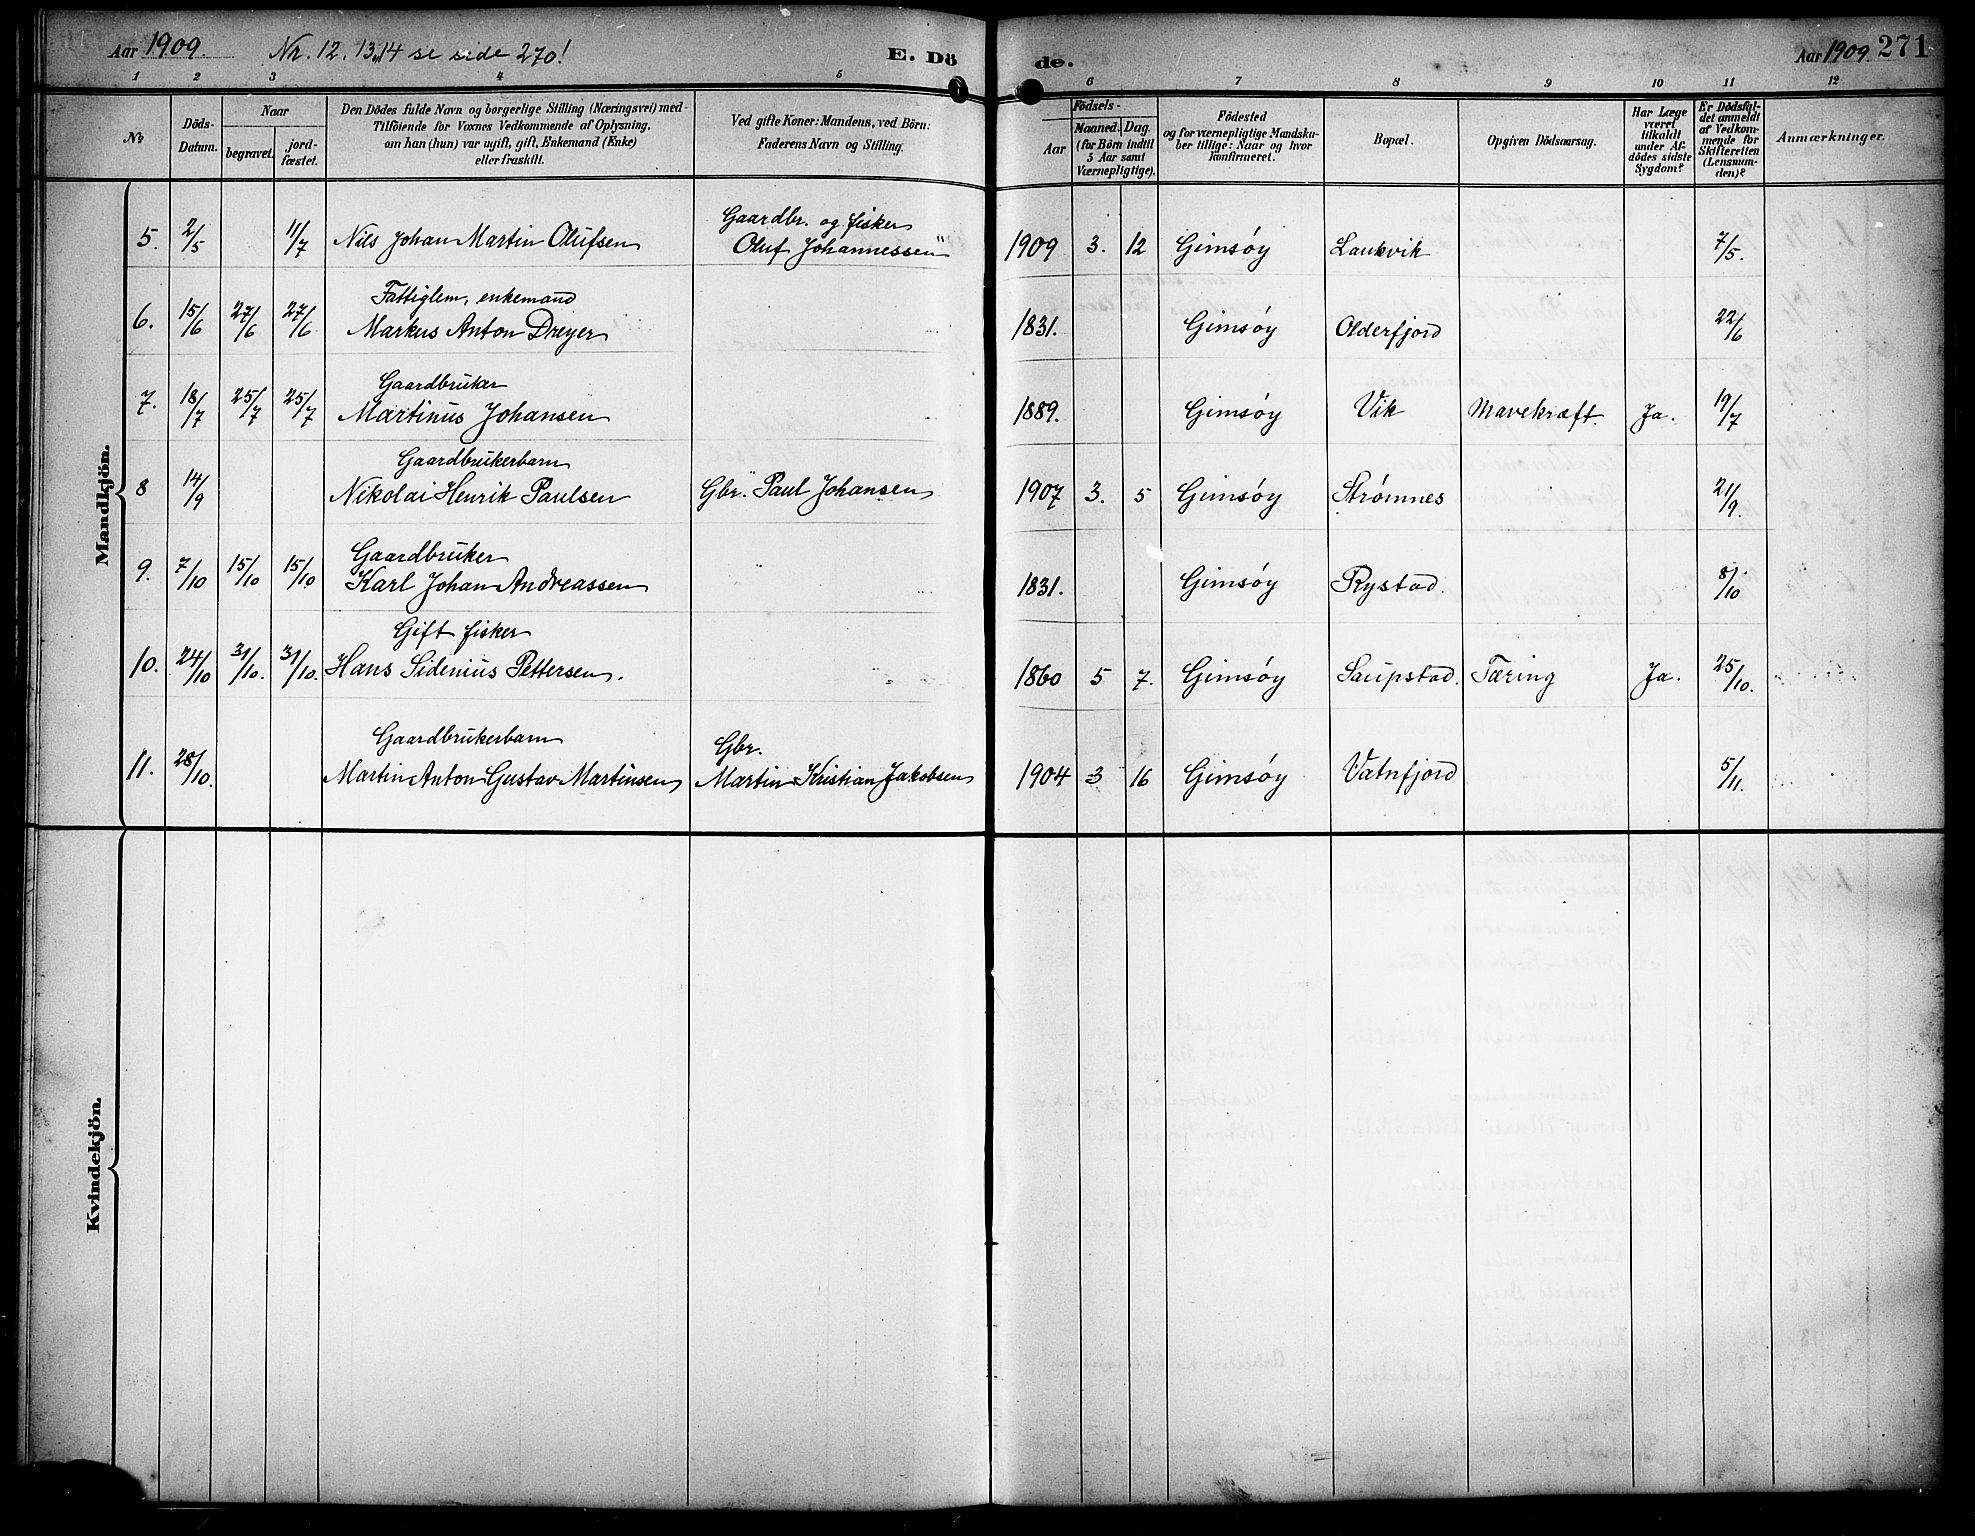 Aar 1909. Nr. 12. 13, 14 se side 270! E. Dö de. Aar 1909. 271
1 2 3 4 5 6 7 8 9 10 11 12
No
Döds-Datum.
Naar
begravet.
jord-fæstet.
Den Dödes fulde Navn og borgerlige Stilling (Næringsvei) med
Tilföiende for Voxnes Vedkommende af Oplysning,
om han (hun) var ugift, gift, Enkemand (Enke)
eller fraskilt.
Ved gifte Koner: Mandens, ved Börn:
Faderens Navn og Stilling.
Födsels-
Aar
Maaned. Dag.
(for Börn indtil
5 Aar samt
Værnepligtige).
Födested
og for værnepligtige Mandska-
ber tillige: Naar og hvor
konfirmeret.
Bopæl.
Opgiven Dödsaarsag.
Har Læge
været
tilkaldt
under Af-
dödes sidste
Sygdom?
Er Dödsfal-
det anmeldt
af Vedkom-
mende for
Skifteretten
(Lensman-
den)?
Anmærkninger.
Mandkjön.
Gaardbr. og fisker
5. 2/5 11/7 Nils Johan Martin Olufsen Oluf Johannessen 1909 3. 12 Gimsöy Laukvik 7/5.
Fattiglem, enkemand
6. 15/6 27/6 27/6 Markus Anton Dreyer 1831. Gimsöy Olderfjord 22/6
Gaardbruker
7. 18/7 25/7 25/7 Martinus Johansen 1889. Gimsöy Vik Mavekræft. Ja. 19/7
Gaardbrukerbarn
8 14/9 Nikolai Henrik Paulsen Gbr. Paul Johansen 1907 3. 5 Gimsöy Strømnes 21/9.
Gaardbruker
9. 7/10 15/10 15/10 Karl Johan Andreassen 1831. Gimsöy Rystad. 8/10
Gift fisker
10. 24/10 31/10. 31/10. Hans Sidenius Pettersen. 1860 5 7. Gimsöy Saupstad. Tæring Ja. 25/10.
Gaardbrukerbarn Gbr.
11. 28/10. Martin Anton Gustav Martinsen Martin Kristian Jakobsen 1904 3 16 Gimsöy Vatnfjord 5/11.
Kvindekjön.